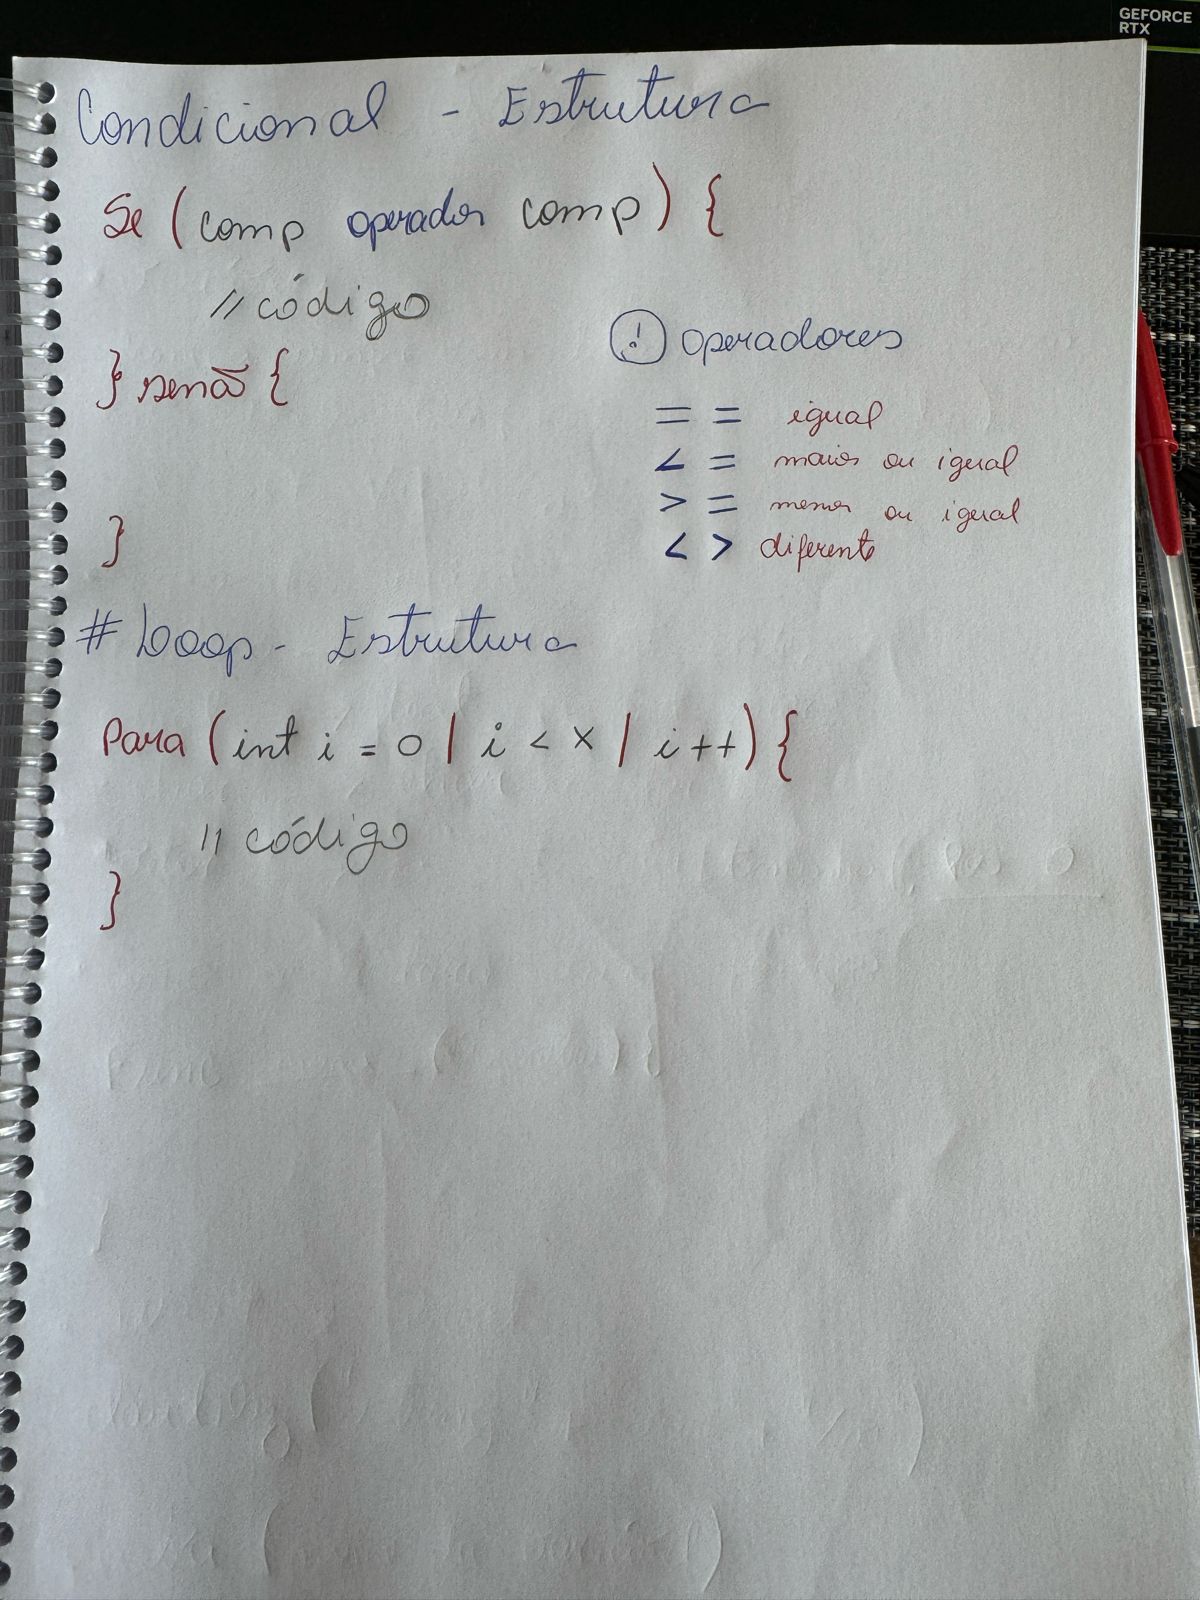 GEFORCE
RTX
Condicional - Estrutura
Se (comp operador comp) {
// código
} senão {
}
! operadores
= = igual
< = maior ou igual
> = menor ou igual
< > diferente
# Loop - Estrutura
Para (int i = 0 | i < x | i ++) {
// código
}